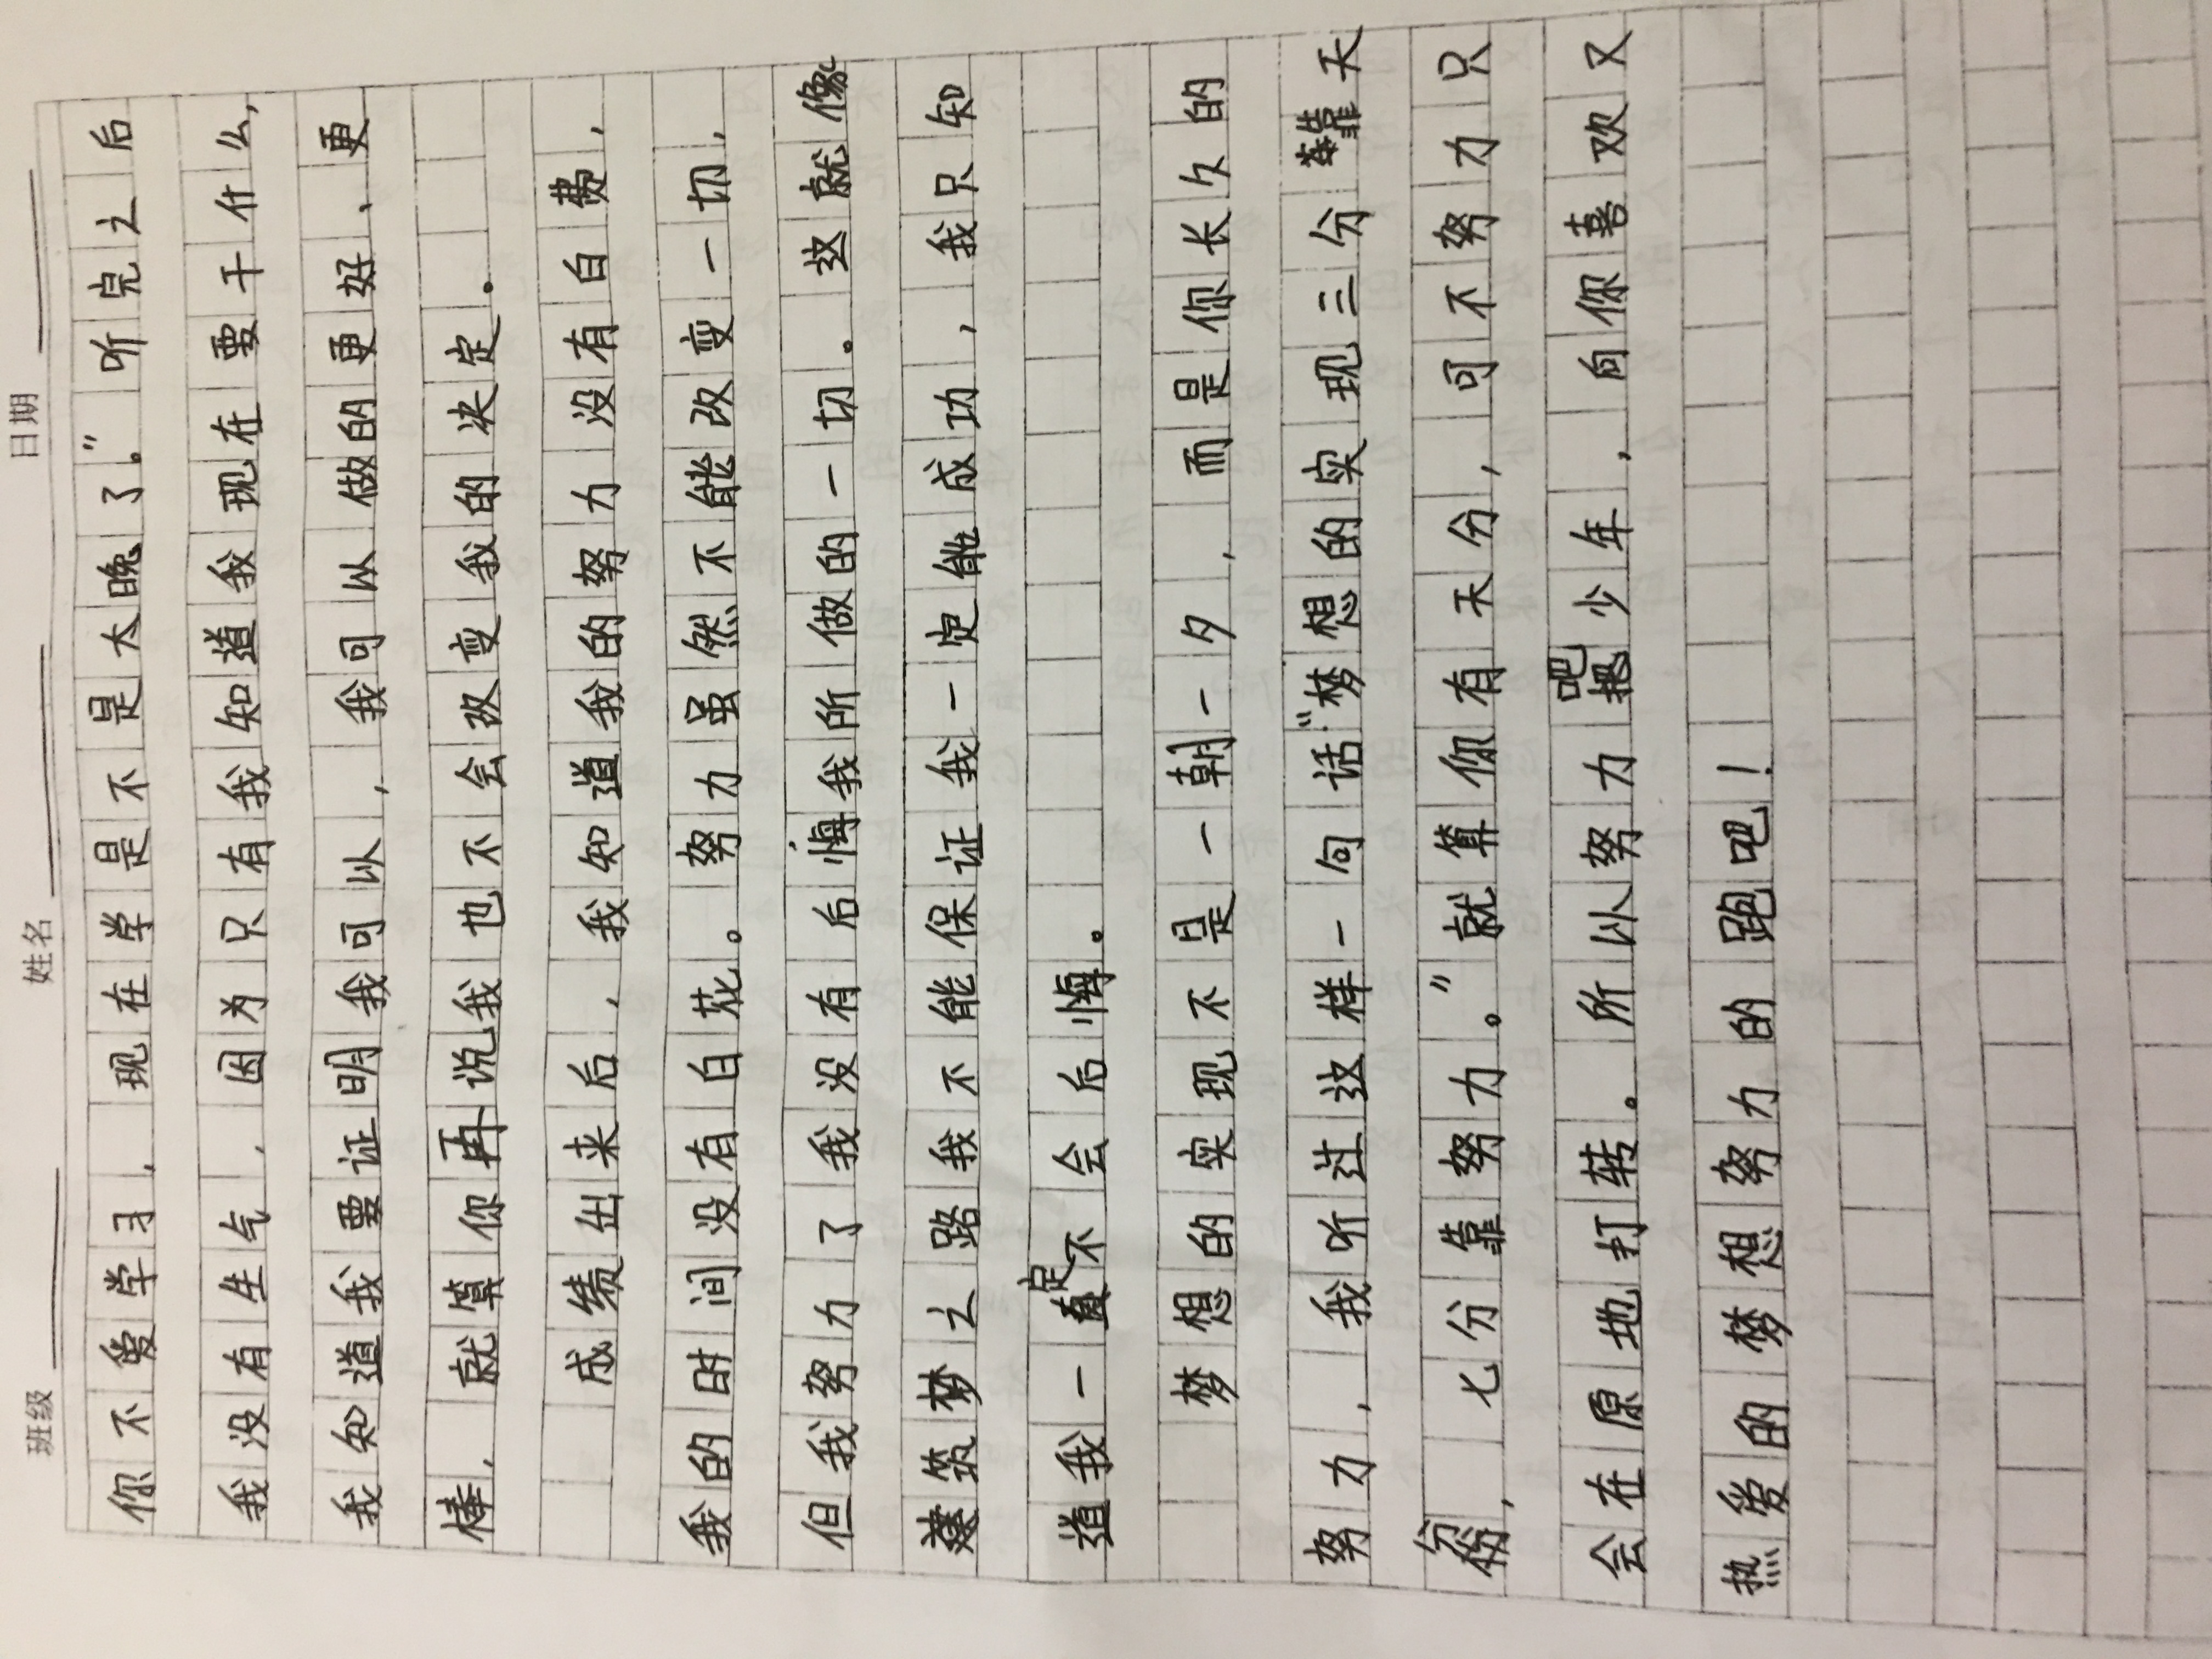 班级 姓名 日期
你不爱学习，现在学是不是太晚了。”听完之后
我没有生气，因为只有我知道我现在要干什么，
我知道我要证明我可以，我可以做的更好、更
棒，就算你再说我也不会改变我的决定。
成绩出来后，我知道我的努力没有白费，
我的时间没有白花。努力虽然不能改变一切，
但我努力了我没有后悔我所做的一切。这就像
建筑梦之路我不能保证我一定能成功，我只知
道我一定不会后悔。
梦想的实现不是一朝一夕，而是你长久的
努力，我听过这样一句话“梦想的实现三分靠天
分，七分靠努力。”就算你有天分，可不努力只
会在原地打转。所以努力吧少年，向你喜欢又
热爱的梦想努力的跑吧！